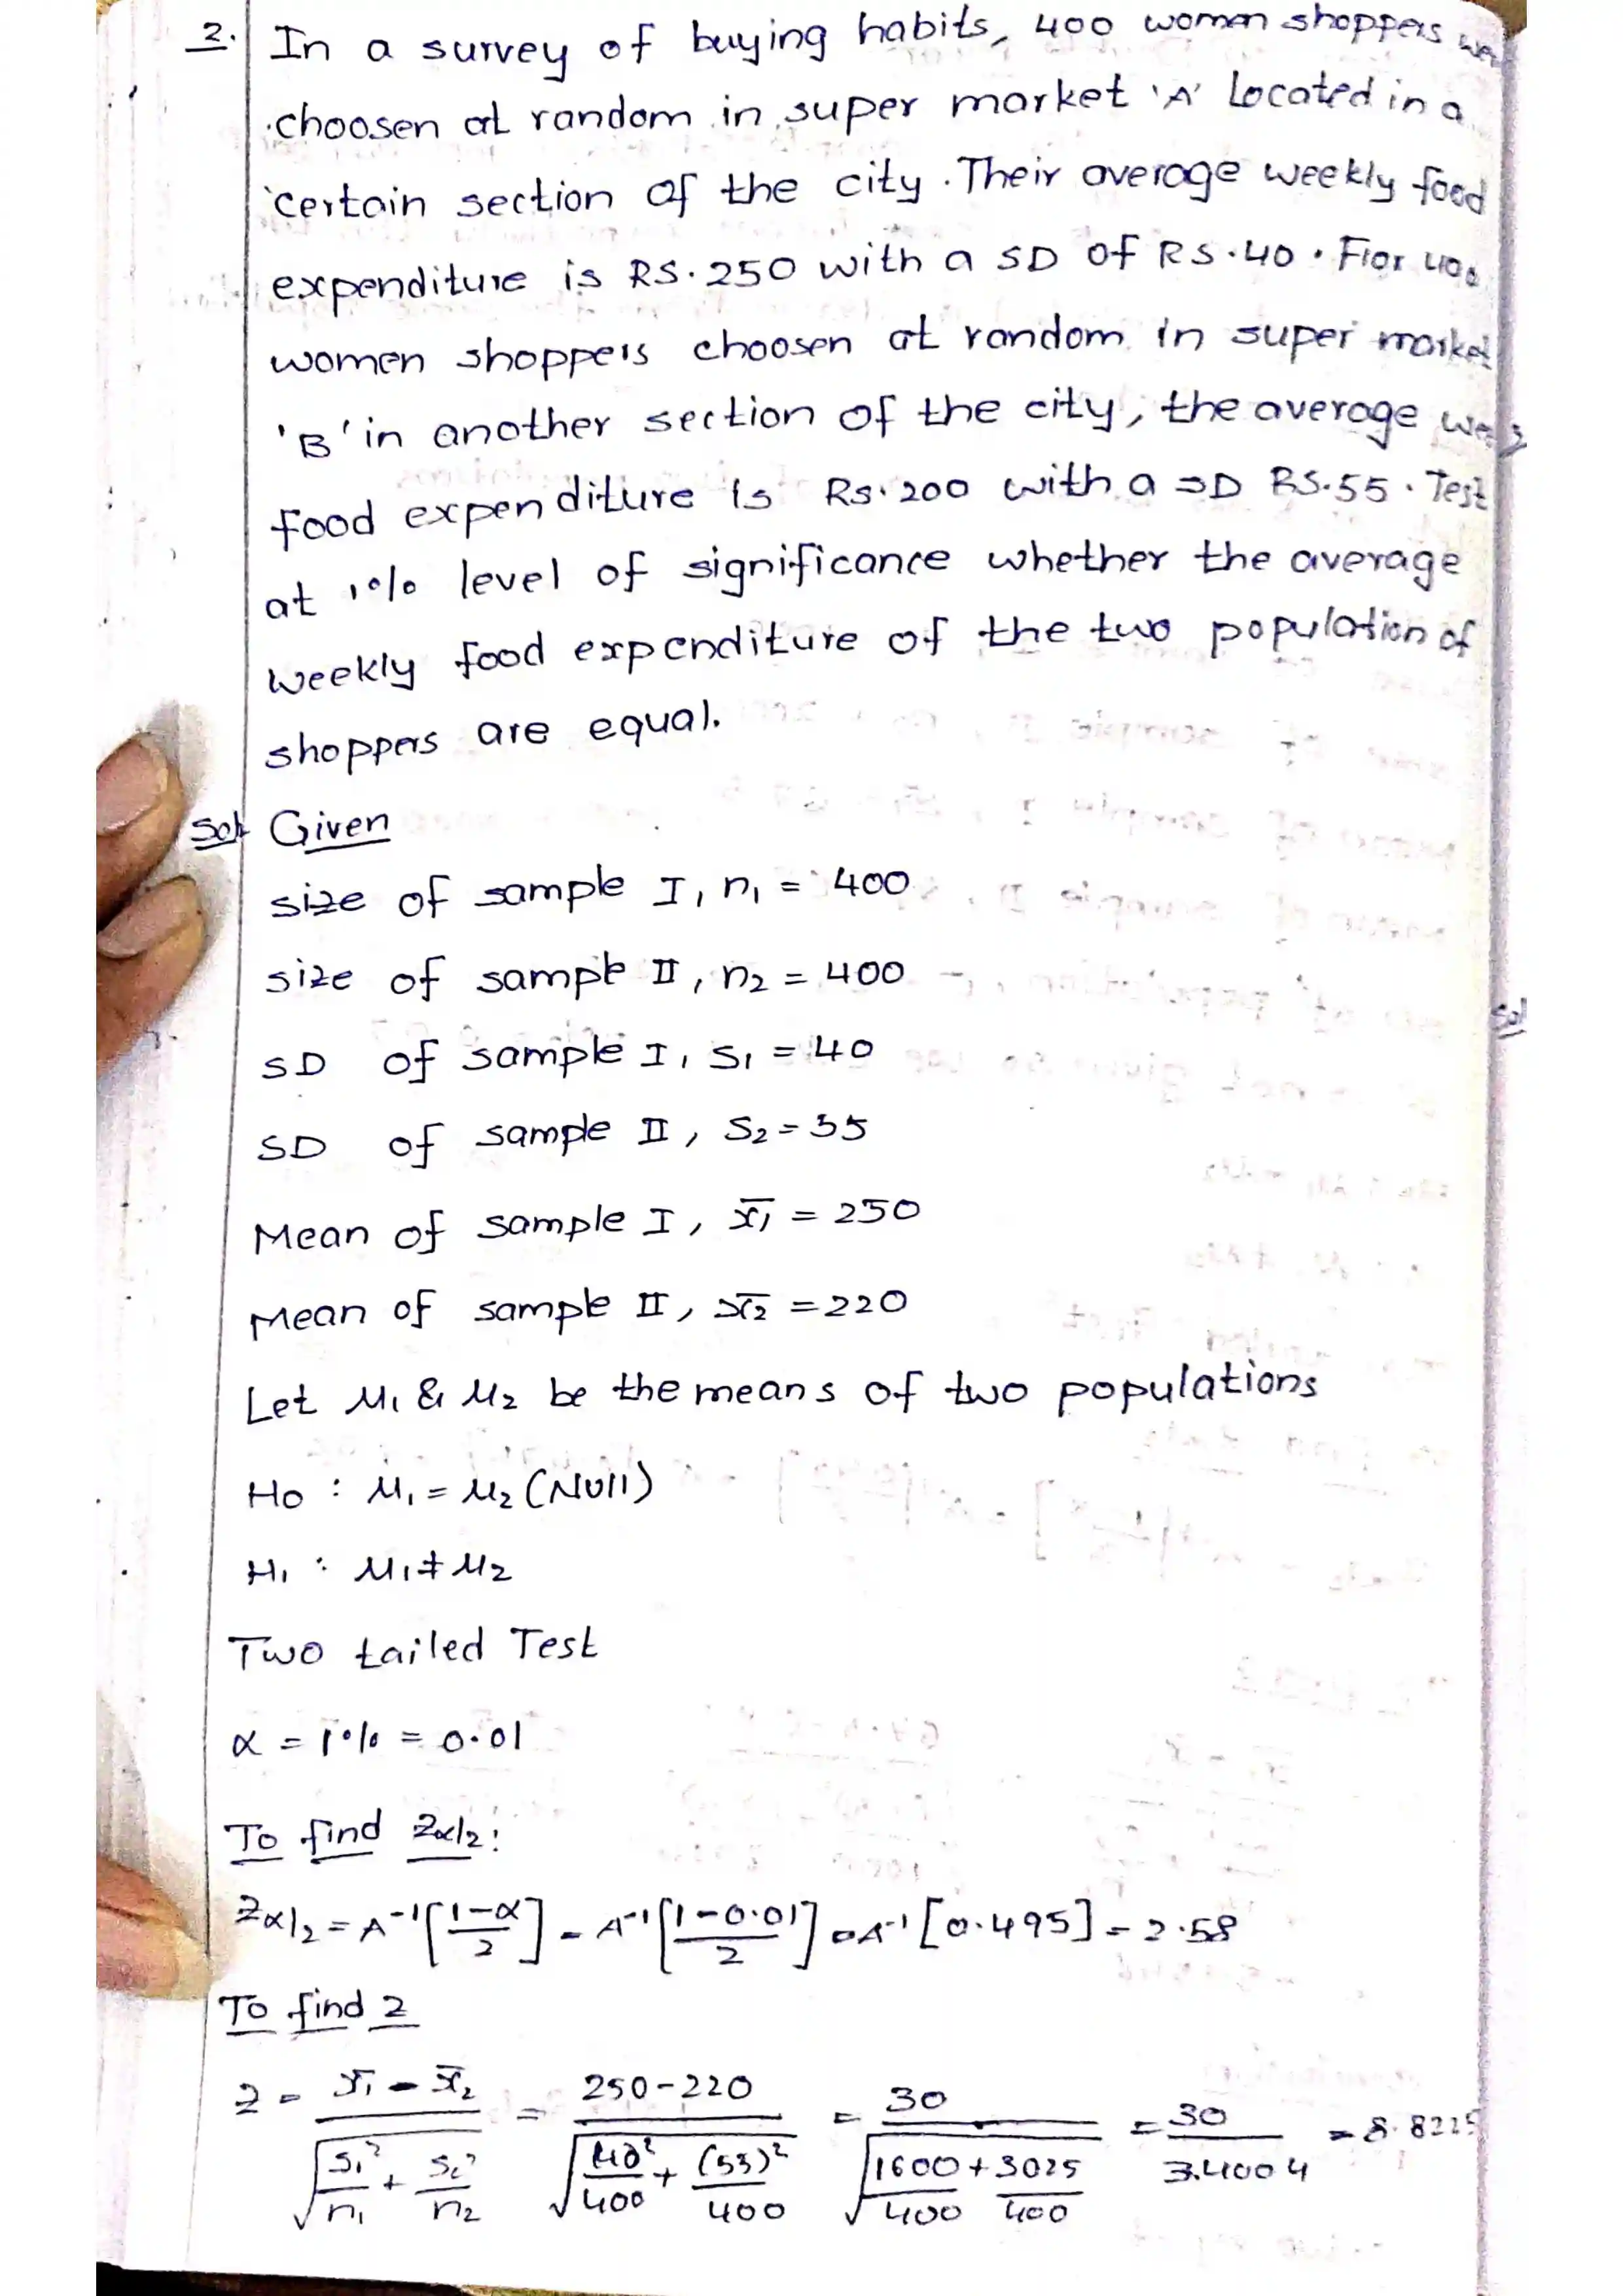 2. In a survey of buying habits, 400 women shoppers
choosen at random in super market 'A' Located in a
certain section of the city. Their average weekly food
expenditure is RS.250 with a SD of RS.40. For 400
women shoppers choosen at random in super market
'B' in another section of the city, the average
food expenditure is Rs.200 with a SD RS.55. Test
at 1% level of significance whether the average
weekly food expenditure of the two population of
shoppers are equal.
Sol Given
size of sample I, n₁ = 400
size of sample II, n₂ = 400
SD of sample I, S₁ = 40
SD of sample II, S₂ = 55
Mean of sample I, x̄₁ = 250
Mean of sample II, x̄₂ = 220
Let μ₁ & μ₂ be the means of two populations
H₀ : μ₁ = μ₂ (Null)
H₁ : μ₁ ≠ μ₂
Two tailed Test
α = 1% = 0.01
To find Zα/2:
Zα/2 = A⁻¹[(1-α)/2] = A⁻¹[(1-0.01)/2] = A⁻¹[0.495] = 2.58
To find Z
Z = (x̄₁ - x̄₂)/√(S₁²/n₁ + S₂²/n₂) = (250-220)/√(40²/400 + (55)²/400) = 30/√(1600/400 + 3025/400) = 30/3.4004 = 8.822